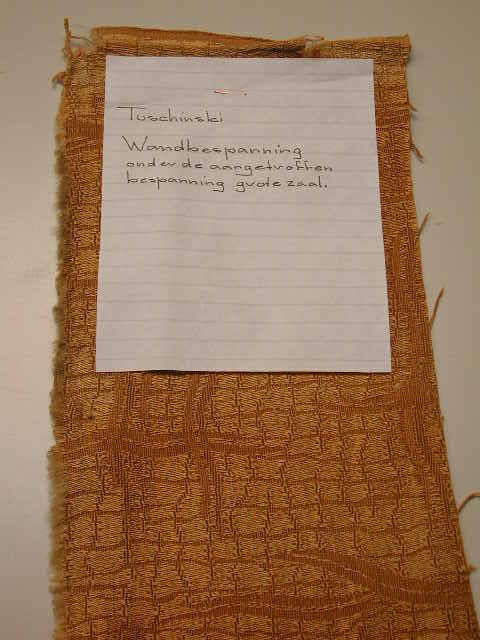 Tuschinski
Wandbespanning
onder de aangetroffen
bespanning grote zaal.